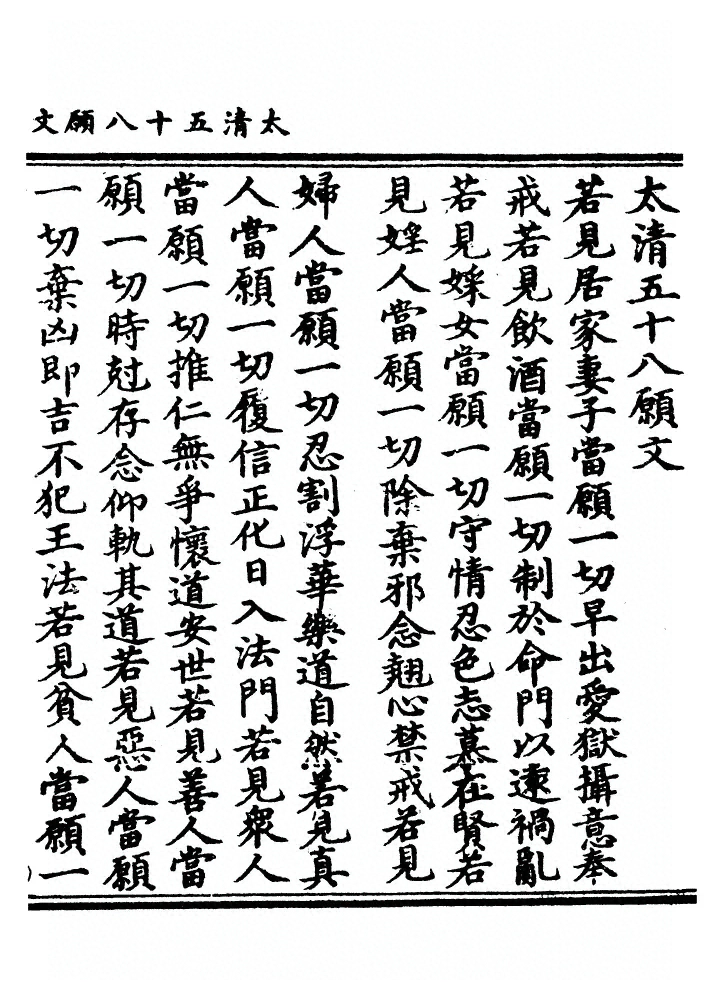 太清五十八願文
太清五十八願文
若見居家妻子當願一切早出愛獄攝意奉
戒若見飲酒當願一切制於命門以遠禍亂
若見婇女當願一切守情忍色志慕在賢若
見婬人當願一切除棄邪念翹心禁戒若見
婦人當願一切忍割浮華樂道自然若見真
人當願一切履信正化日入法門若見眾人
當願一切推仁無爭懷道安世若見善人當
願一切時尅存念仰軌其道若見惡人當願
一切棄凶即吉不犯王法若見貧人當願一